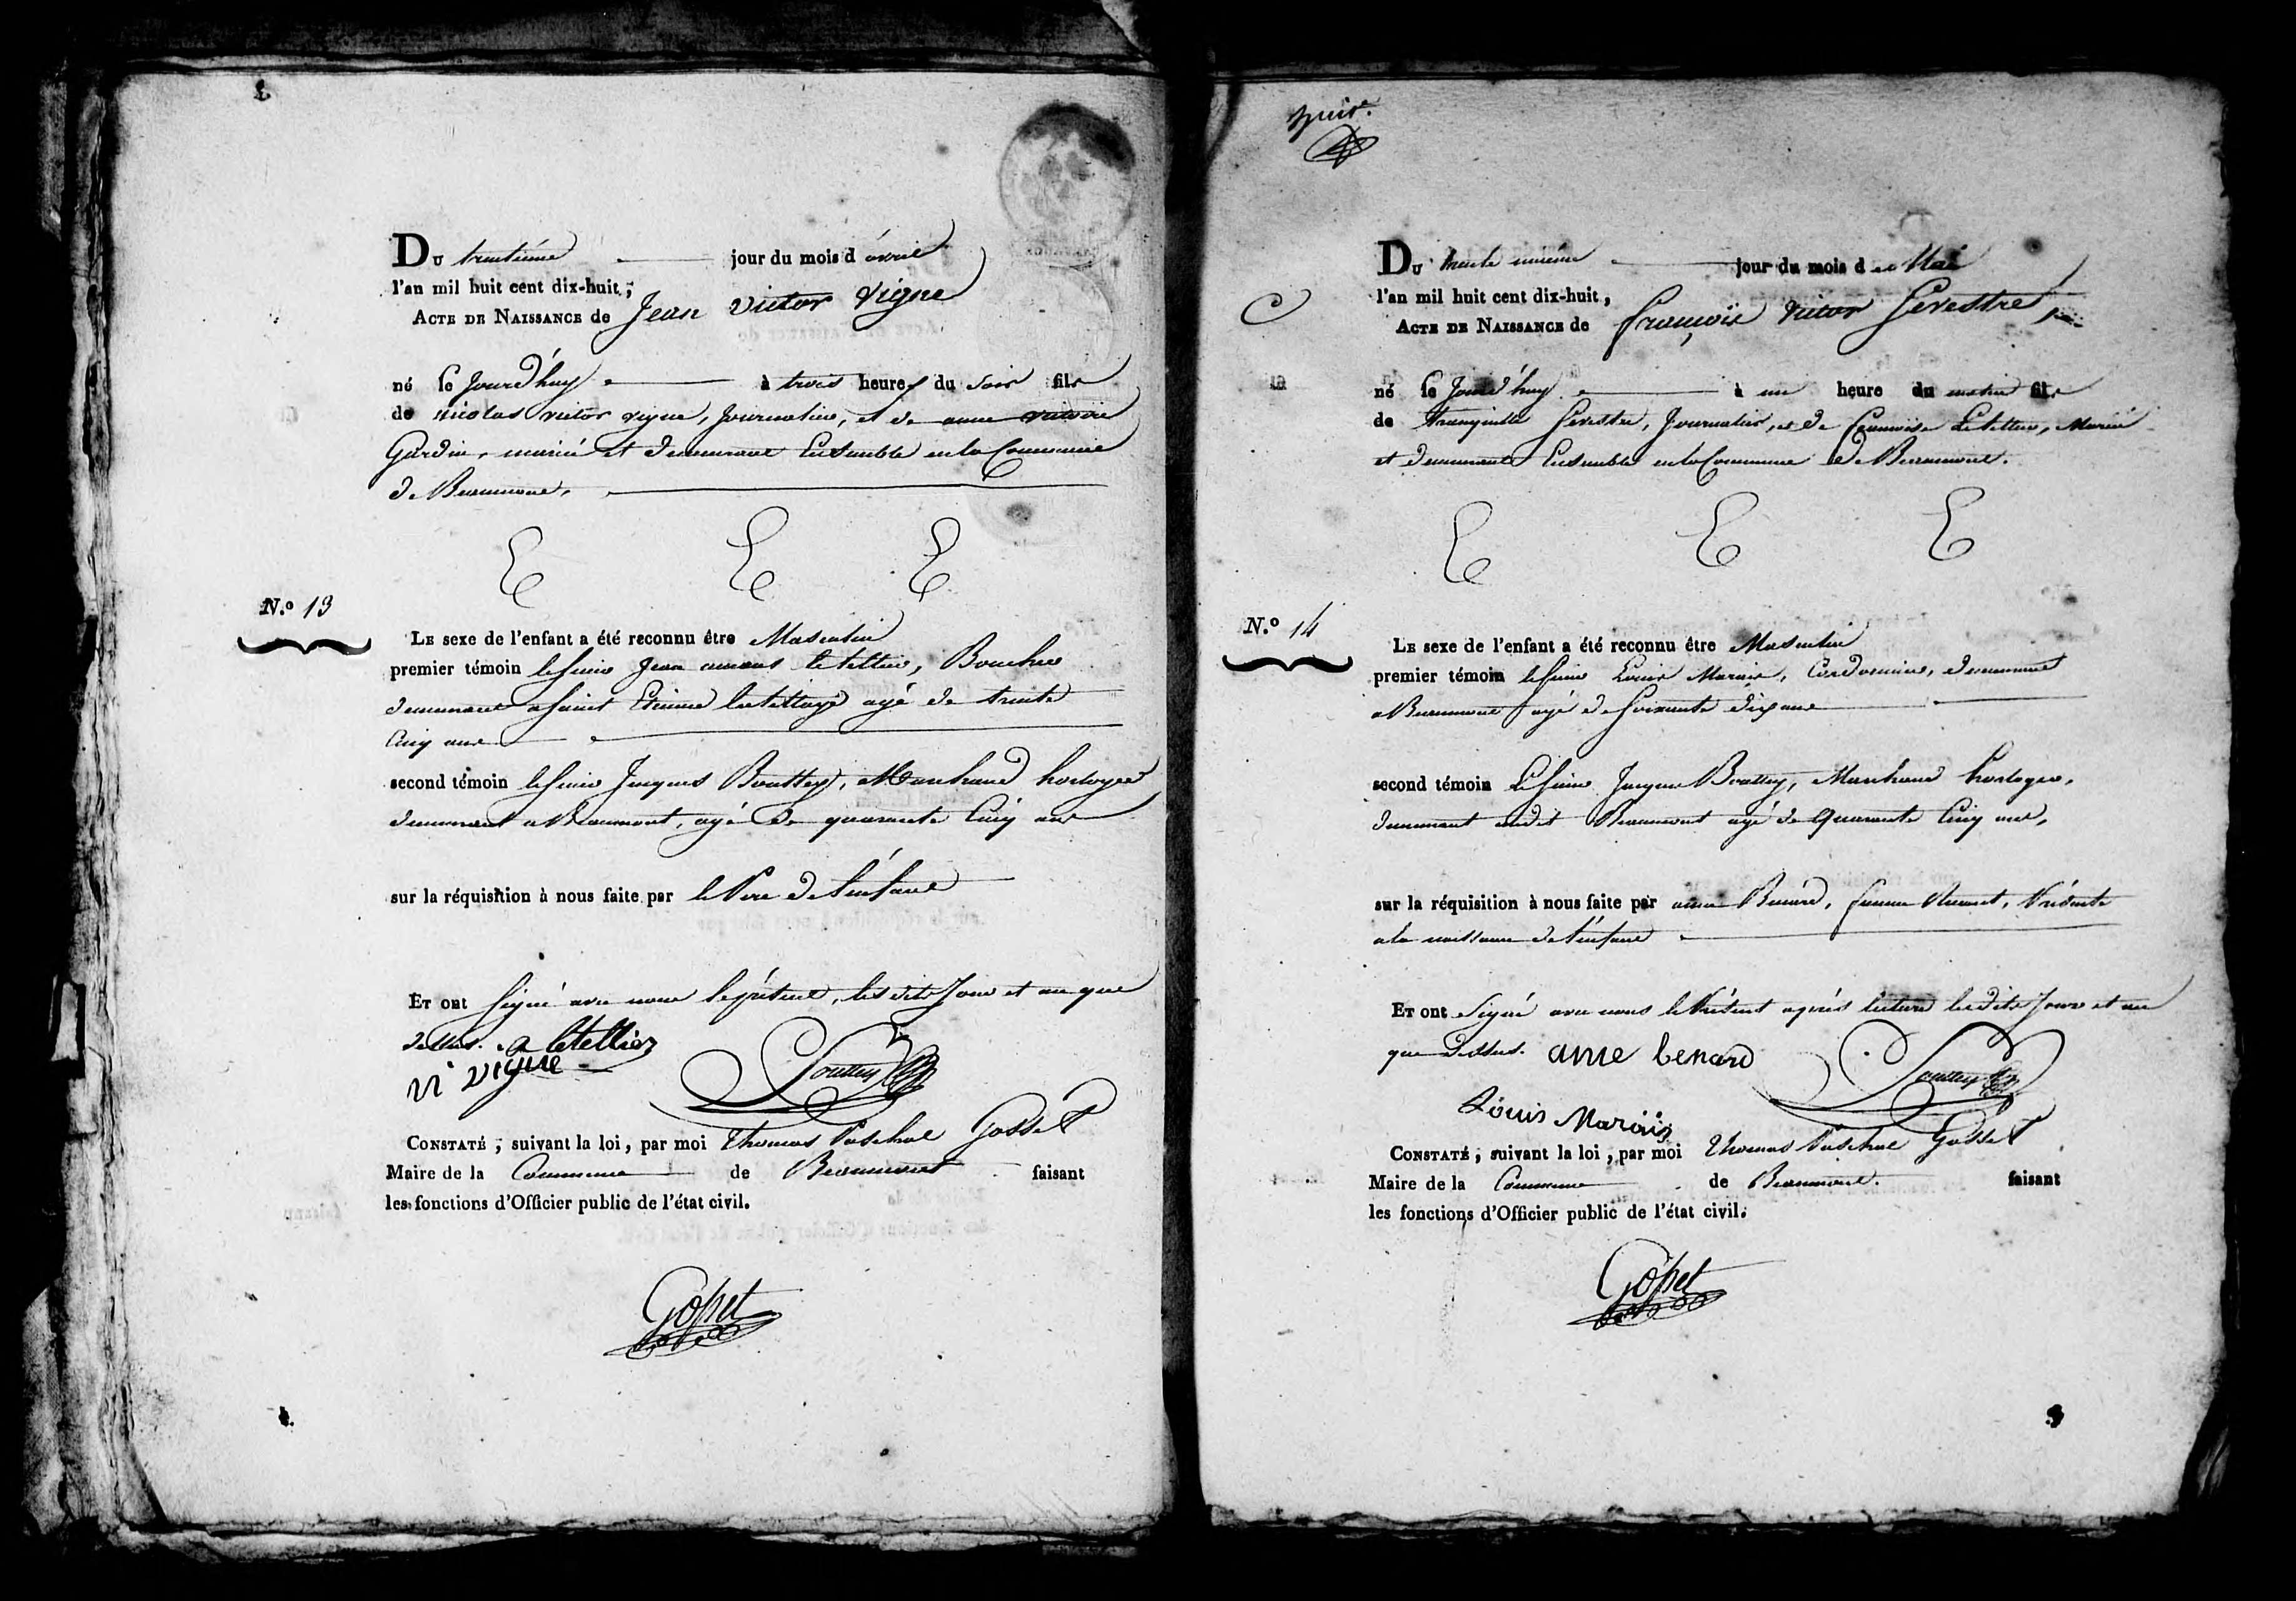 Du trentième jour du mois d'avril
l'an mil huit cent dix-huit ;
Acte de Naissance de Jean victor vigne
né le jourd'huy à trois heures du soir fils
de nicolas victor vigne, journalier, et de anne victoire
Gardin, marié et demeurant Ensemble en la Commune
de Beaumont.
N.º 13
Le sexe de l'enfant a été reconnu être Masculin
premier témoin le sieur Jean amant le tellier, Boucher
demeurant a saint Etienne agé de trente
Cinq ans
second témoin le sieur Jacques Bouttey, Marchand horloger
demeurant a Beaumont, agé de quarante Cinq ans
sur la réquisition à nous faite par le Père de l'enfant
Et ont signé avec nous le présent, les dits Jour et an que
dessus. a letellier
vi vigne
Constaté, suivant la loi, par moi Thomas Paschal Gosset
Maire de la Commune de Beaumont faisant
les fonctions d'Officier public de l'état civil.
Gosset
Du trente unième jour du mois de Mai
l'an mil huit cent dix-huit,
Acte de Naissance de françois victor Sevestre,
né le Jourd'huy à un heure du matin fils
de tranquille Sevestre, Journalier, et de françoise Letellier, Marié
et demeurant Ensemble en la Commune de Beaumont.
N.º 14
Le sexe de l'enfant a été reconnu être Masculin
premier témoin le sieur Louis Marais, Cordonnier, demeurant
a Beaumont agé de soixante dix ans
second témoin Le sieur Jacques Bouttey, Marchand horloger,
demeurant audit Beaumont agé de quarante Cinq ans,
sur la réquisition à nous faite par anne Bénard, femme Présente
a la naissance de l'enfant
Et ont signé avec nous le Présent après lecture les dits Jour et an
que dessus. anne benard
Bouttey
Louis Marais
Constaté, suivant la loi, par moi Thomas Paschal Gosset
Maire de la Commune de Beaumont. faisant
les fonctions d'Officier public de l'état civil.
Gosset